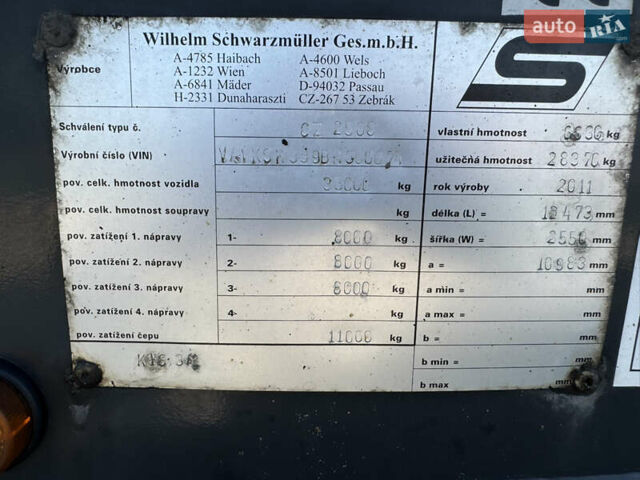 auto RIA
Wilhelm Schwarzmüller Ges.m.b.H.
A-4785 Haibach A-4600 Wels
Výrobce A-1232 Wien A-8501 Lieboch
A-6841 Mäder D-94032 Passau
H-2331 Dunaharaszti CZ-267 53 Žebrák
S
Schválení typu č. CZ vlastní hmotnost kg
Výrobní číslo (VIN) užitečná hmotnost 28370 kg
pov. celk. hmotnost vozidla kg rok výroby 2011
pov. celk. hmotnost soupravy kg délka (L) = mm
pov. zatížení 1. nápravy 1- 8000 kg šířka (W) = 2550 mm
pov. zatížení 2. nápravy 2- 8000 kg a = mm
pov. zatížení 3. nápravy 3- 8000 kg a min = mm
pov. zatížení 4. nápravy 4- kg a max = mm
pov. zatížení čepu 11000 kg b = mm
b min = mm
b max mm